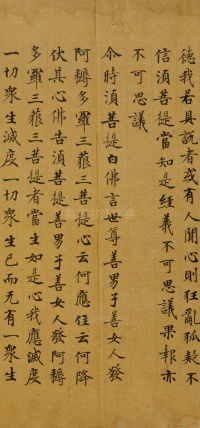 德我若具說者或有人聞心則狂亂狐疑不
信須菩提當知是經義不可思議果報亦
不可思議
尒時須菩提白佛言世尊善男子善女人發
阿耨多羅三藐三菩提心云何應住云何降
伏其心佛告須菩提善男子善女人發阿耨
多羅三藐三菩提者當生如是心我應滅度
一切衆生滅度一切衆生已而无有一衆生